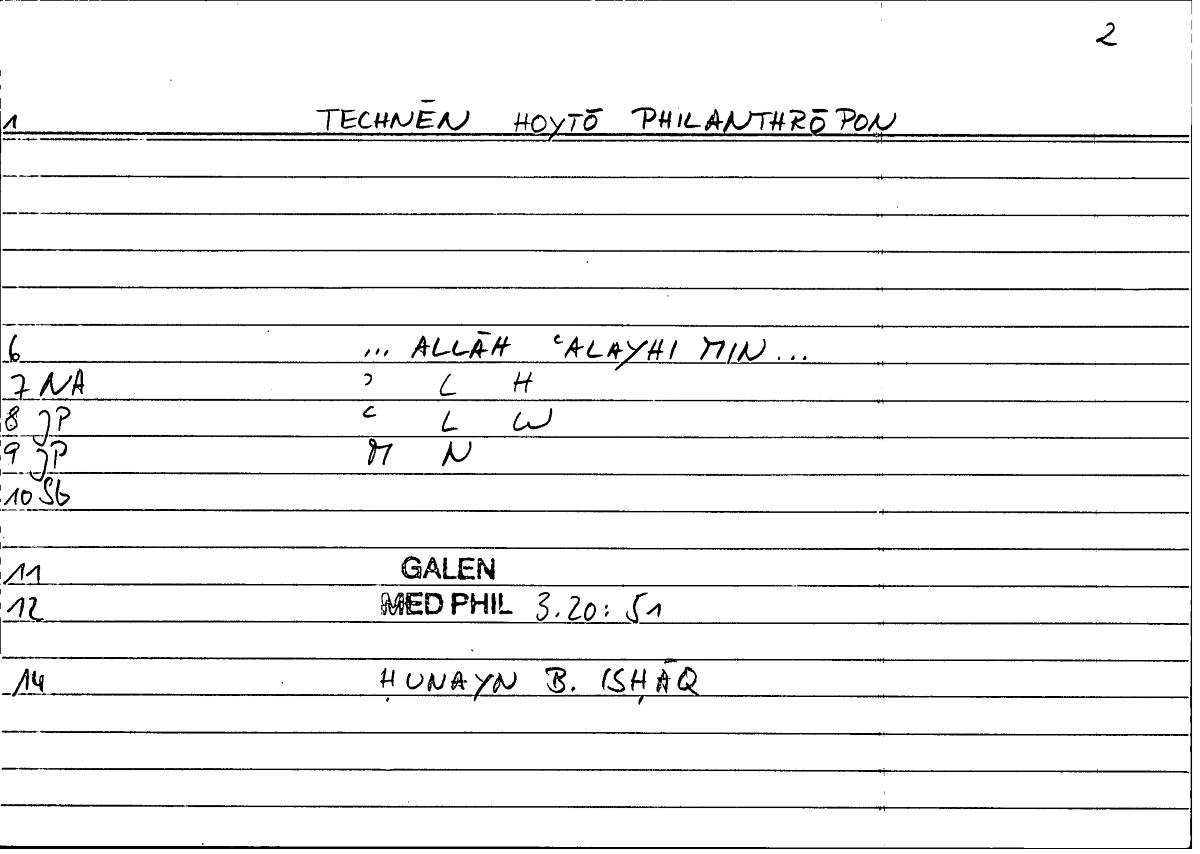 2
1 TECHNĒN HOYTŌ PHILANTHRŌPON
6 ... ALLĀH ʿALAYHI MIN ...
7 NA ʾ L H
8 JP ʿ L W
9 JP M N
10 Sb
11 GALEN
12 MED PHIL 3.20: 51
14 ḤUNAYN B. ISḤĀQ